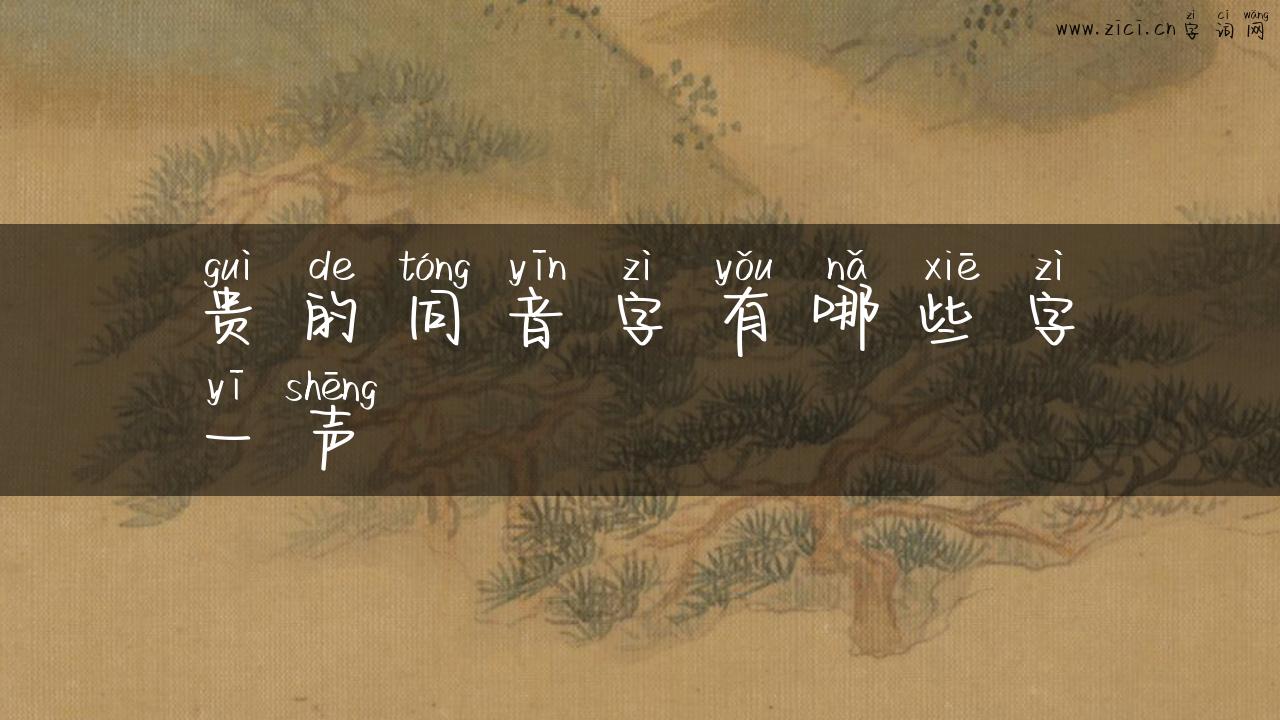 zì cí wǎng
www.zici.cn 字词网
guì de tóng yīn zì yǒu nǎ xiē zì
贵的同音字有哪些字
yī shēng
一声